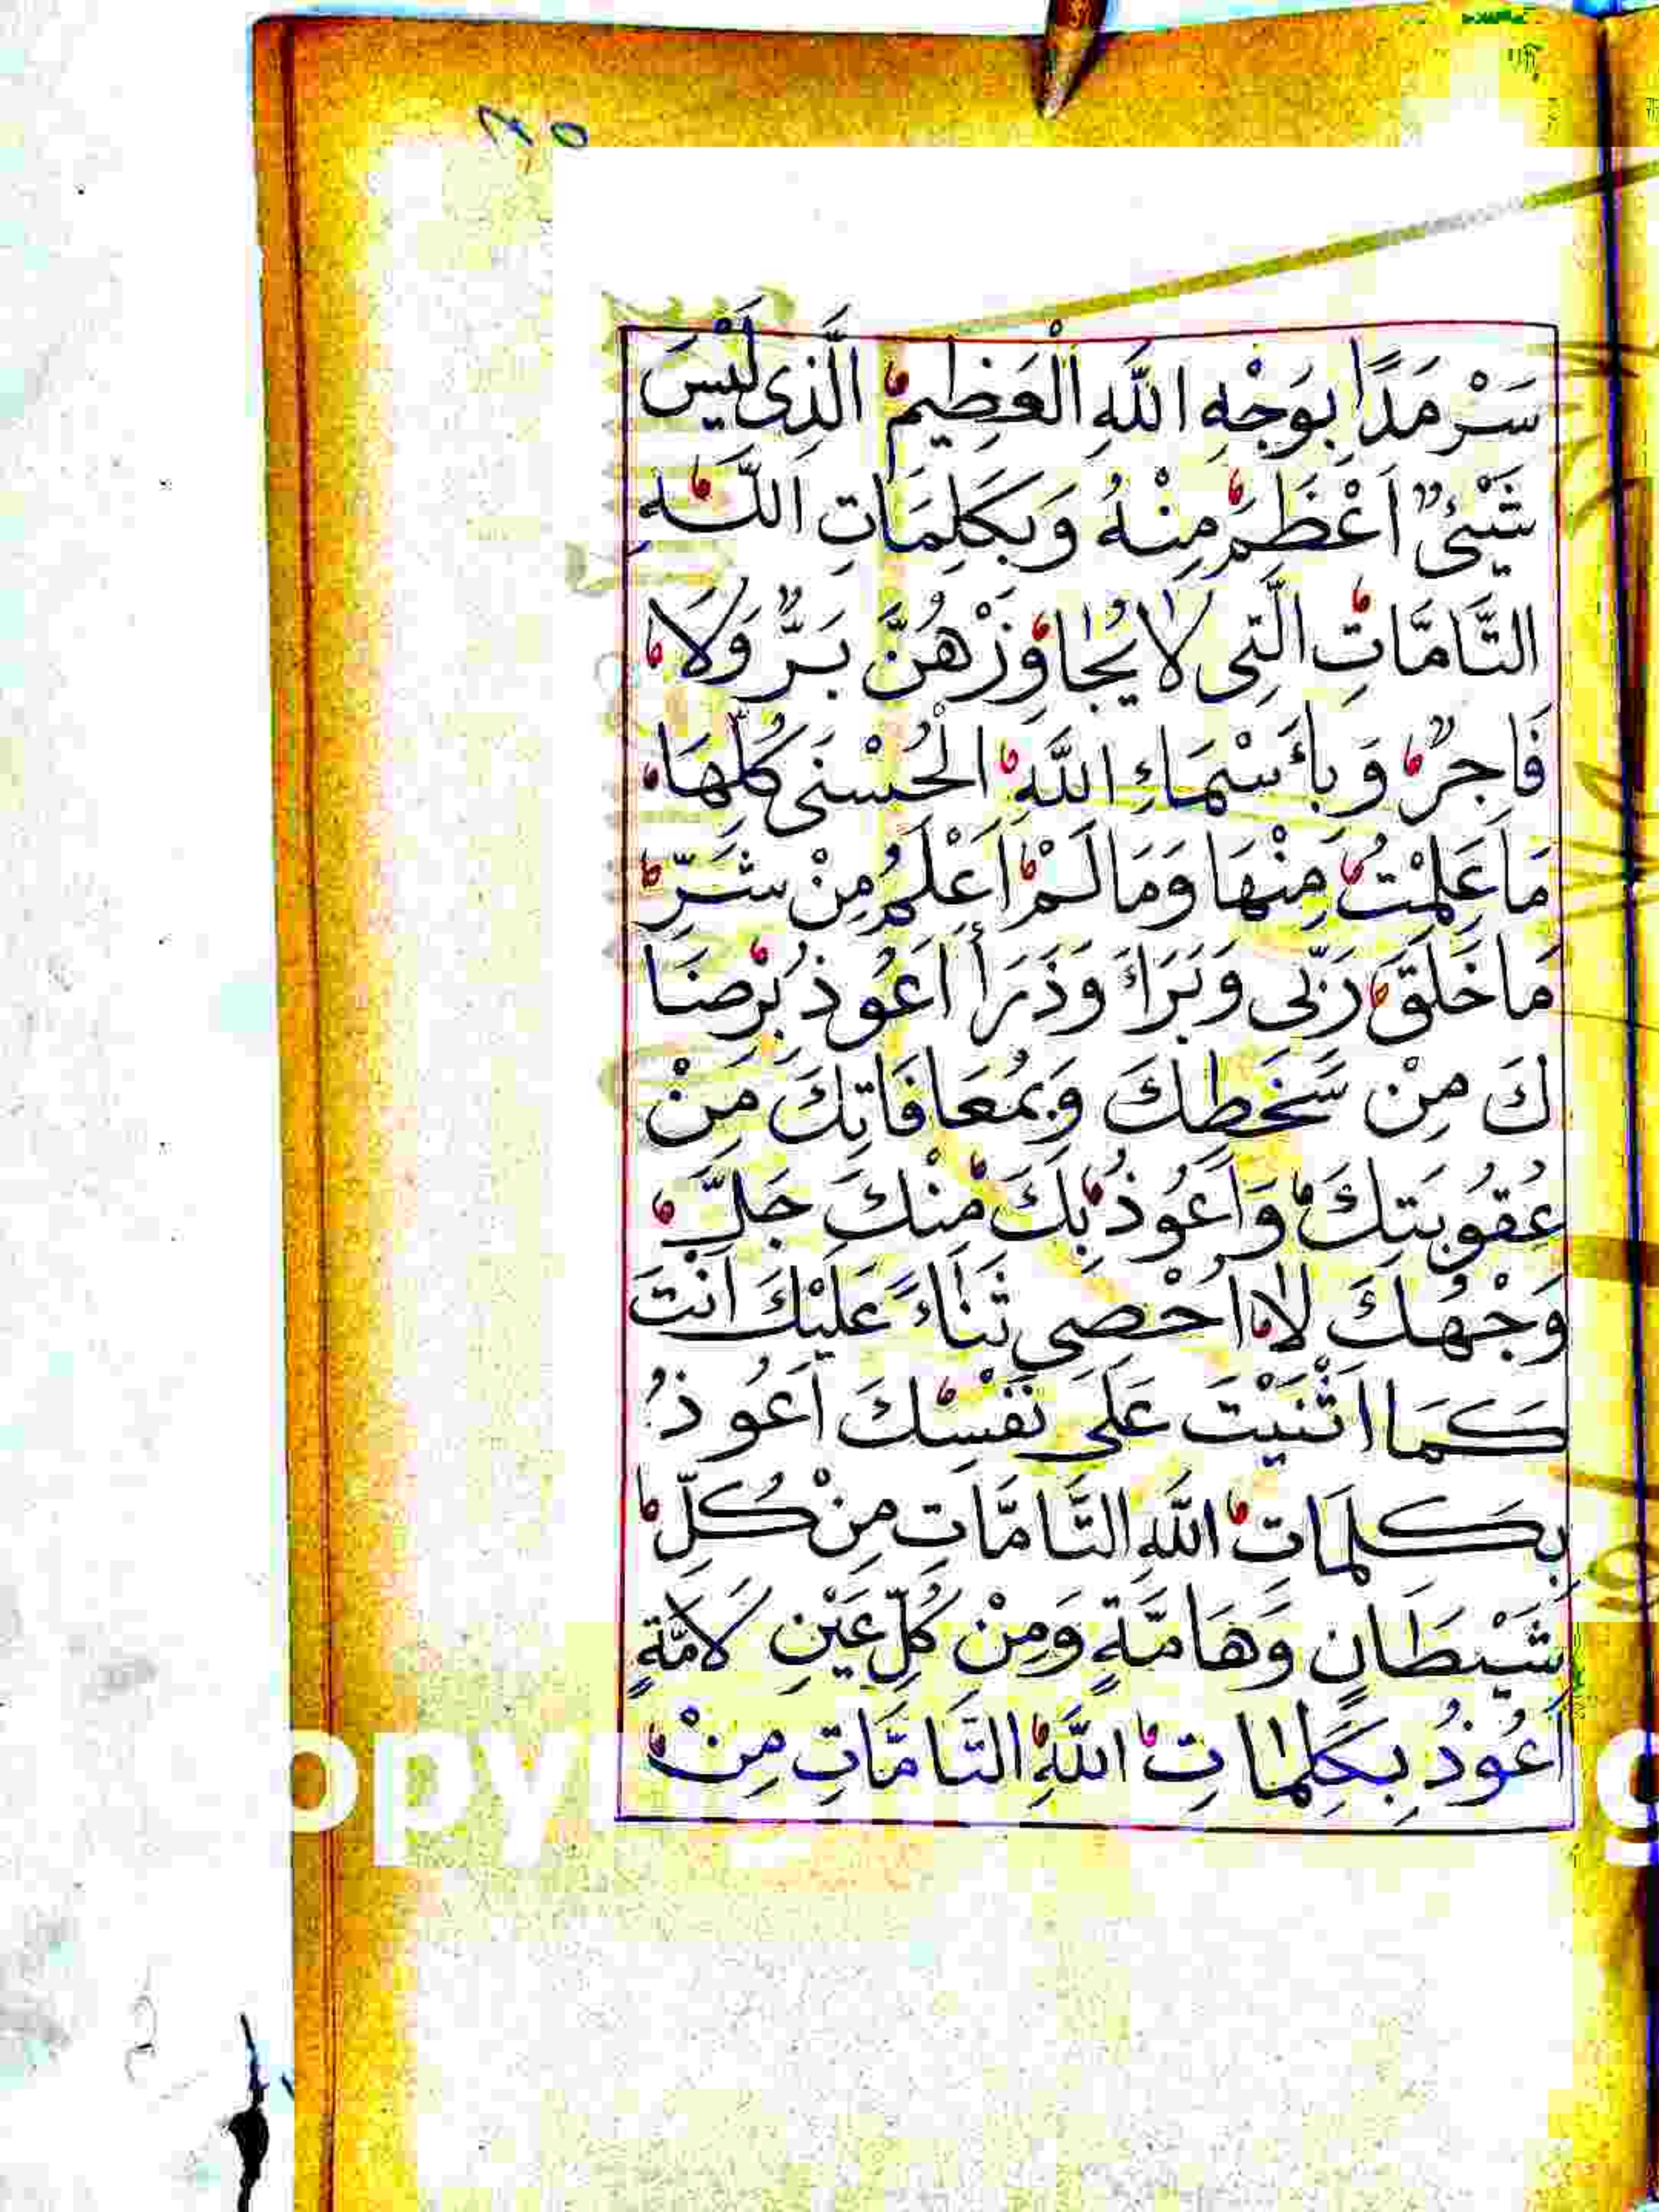 ٨٥
سَرْمَدًا بِوَجْهِ اللَّهِ الْعَظِيمْ الَّذِى لَيْسَ
شَيْئٌ اَعْظَمَ مِنْهُ وَبِكَلِمَاتِ اللَّهِ
التَّامَّاتِ الَّتِى لَا يُجَاوِزْهُنَّ بَرٌّ وَلَا
فَاجِرٌ وَبِأَسْمَاءِ اللَّهِ الْحُسْنَى كُلِّهَا
مَا عَلِمْتُ مِنْهَا وَمَا لَمْ اَعْلَمُ مِنْ شَرِّ
مَا خَلَقَ رَبِّى وَبَرَاَ وَذَرَأَ اَعُوذُ بِرِضَا
كَ مِنْ سَخَطِكَ وَبِمُعَافَاتِكَ مِنْ
عُقُوبَتِكَ وَاَعُوذُ بِكَ مِنْكَ جَلَّ
وَجْهُكَ لَا اُحْصِى ثَنَاءً عَلَيْكَ اَنْتَ
كَمَا اَثْنَيْتَ عَلَى نَفْسِكَ اَعُوذُ
بِكَلِمَاتِ اللَّهِ التَّامَّاتِ مِنْ كُلِّ
شَيْطَانٍ وَهَامَّةٍ وَمِنْ كُلِّ عَيْنٍ لَامَّةٍ
اَعُوذُ بِكَلِمَاتِ اللَّهِ التَّامَّاتِ مِنْ
opy
g